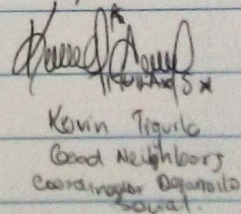 Kevin Tiguila
Good Neighbors
Coordinador Desarrollo
Social.